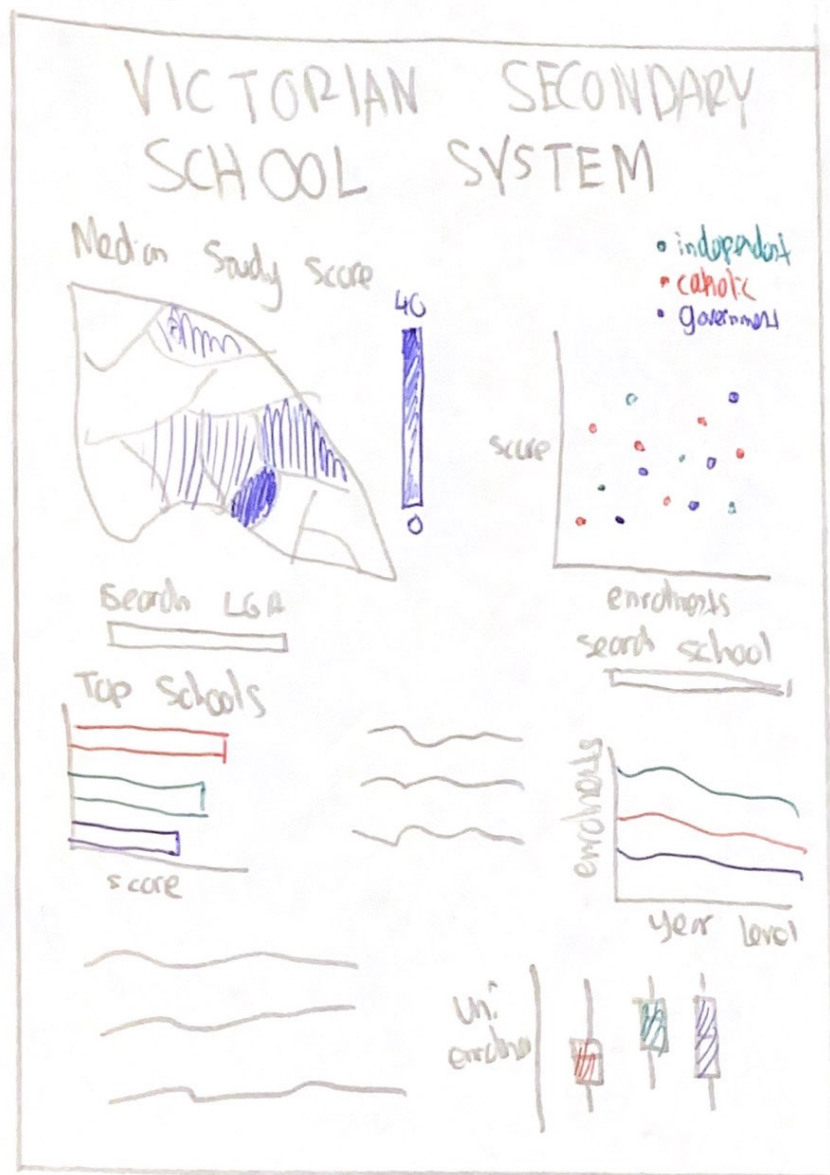 VICTORIAN SECONDARY
SCHOOL SYSTEM
Median Study Score
40
0
independent
catholic
government
score
enrolments
search LGA
search school
Top Schools
score
enrolments
year level
Uni